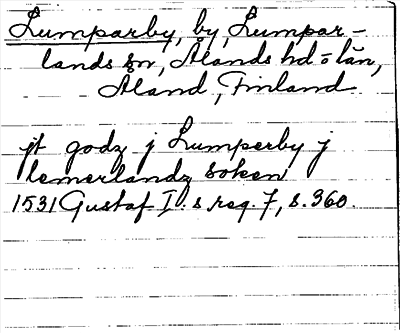 Lumparby, by, Lumpar-
lands sn, Ålands hd o län,
Åland, Finland
jt godz j Lumperby j
lemerlandz soken
1531 Gustaf I:s reg. 7, s. 360.